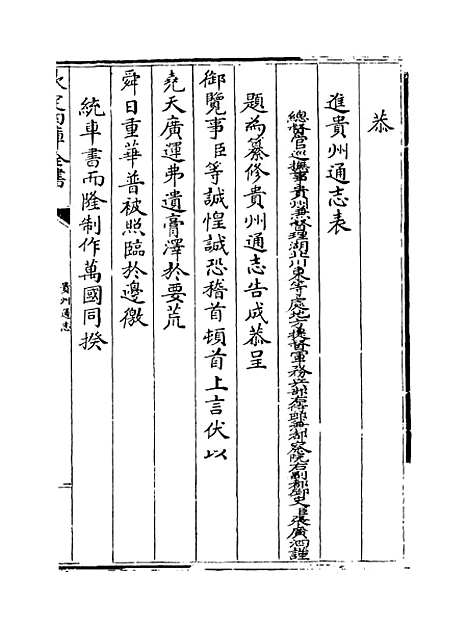 恭
進貴州通志表
總督管巡撫事貴州兼督理湖北川東等處地方提督軍務兵部右侍郎兼都察院右副都御史臣張廣泗謹
題為纂修貴州通志告成恭呈
御覽事臣等誠惶誠恐稽首頓首上言伏以
堯天廣運弗遺膏澤於要荒
舜日重華普被照臨於邊徼
統車書而隆制作萬國同揆
欽定四庫全書
貴州通志
一